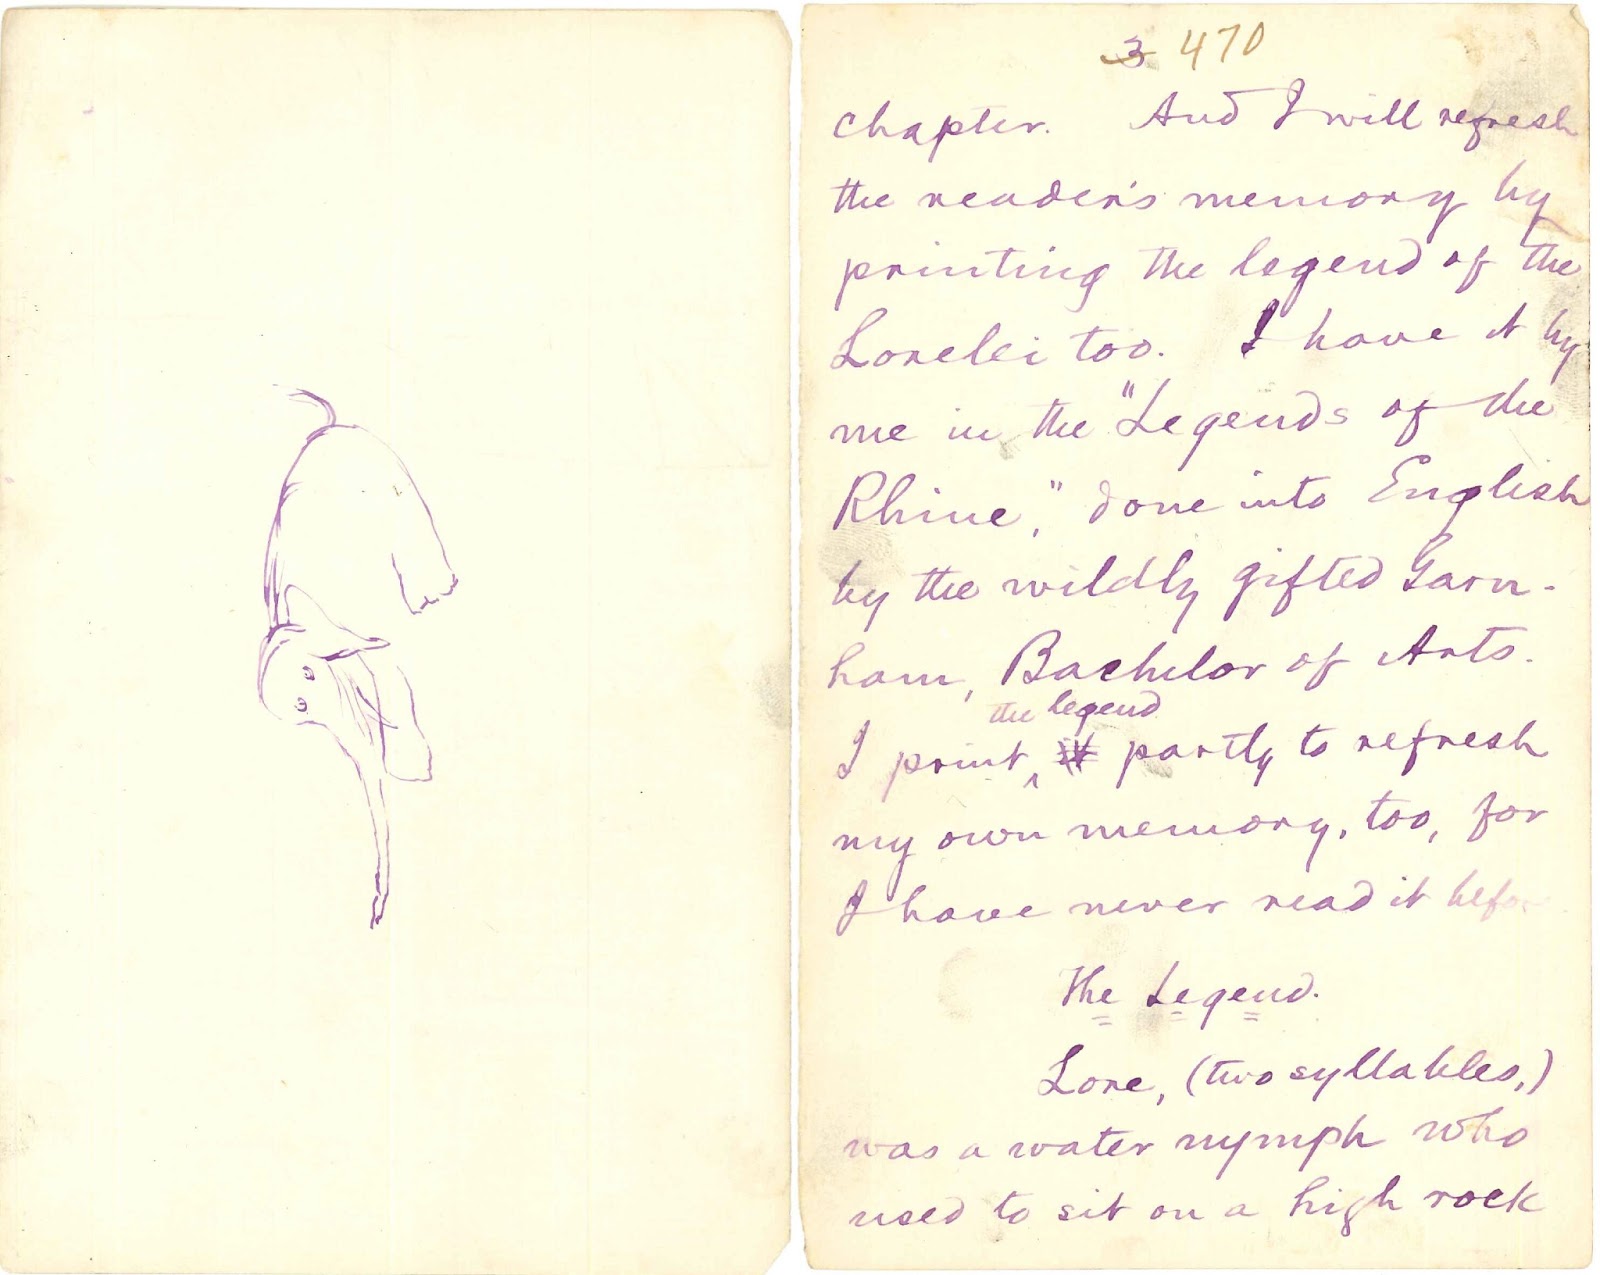 3 470
chapter. And I will refresh
the reader's memory by
printing the legend of the
Lorelei too. I have it by
me in the "Legends of the
Rhine," done into English
by the wildly gifted Garn-
ham, Bachelor of Arts.
the legend
I print ‸ it partly to refresh
my own memory, too, for
I have never read it before
The Legend.
Lore, (two syllables,)
was a water nymph who
used to sit on a high rock